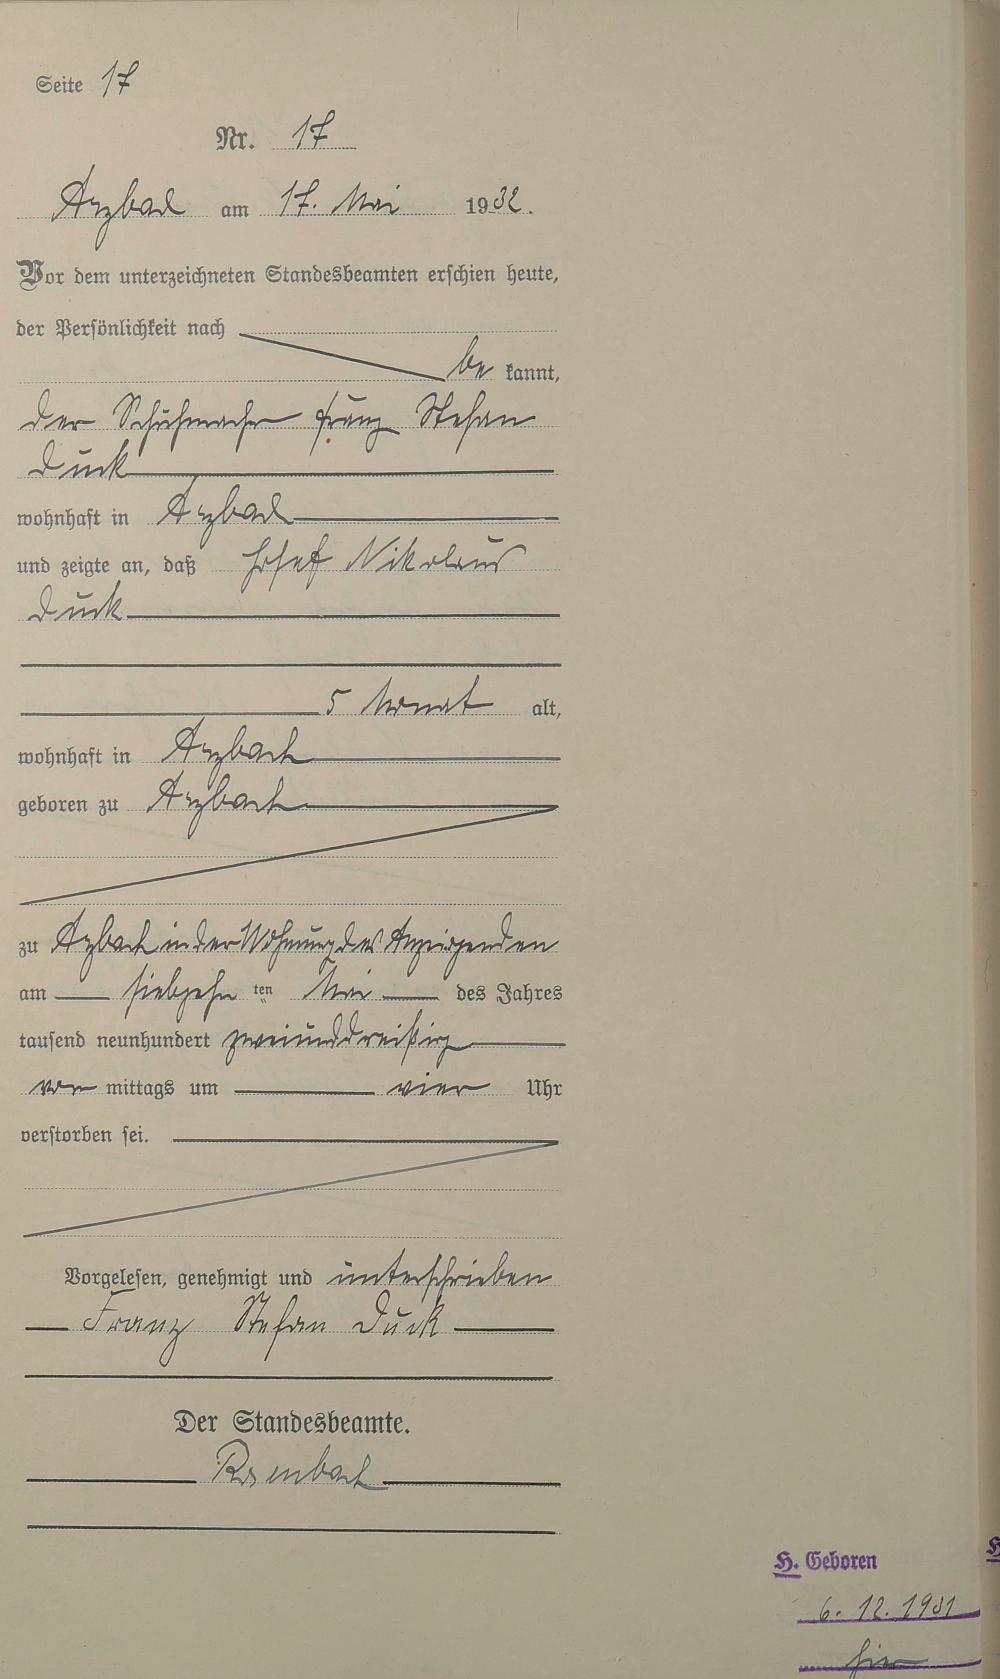 Seite 17
Nr. 17
Arzbach am 17. Mai 1932.
Vor dem unterzeichneten Standesbeamten erschien heute,
der Persönlichkeit nach
be kannt,
der Schuhmacher Franz Stefan
Duck
wohnhaft in Arzbach
und zeigte an, daß Josef Nikolaus
Duck
5 Monat alt,
wohnhaft in Arzbach
geboren zu Arzbach
zu Arzbach in der Wohnung des Anzeigenden
am siebzehn ten Mai des Jahres
tausend neunhundert zweiunddreißig
vor mittags um vier Uhr
verstorben sei.
Vorgelesen, genehmigt und unterschrieben
Franz Stefan Duck
Der Standesbeamte.
Rosenbach
H. Geboren
6. 12. 1931
hier